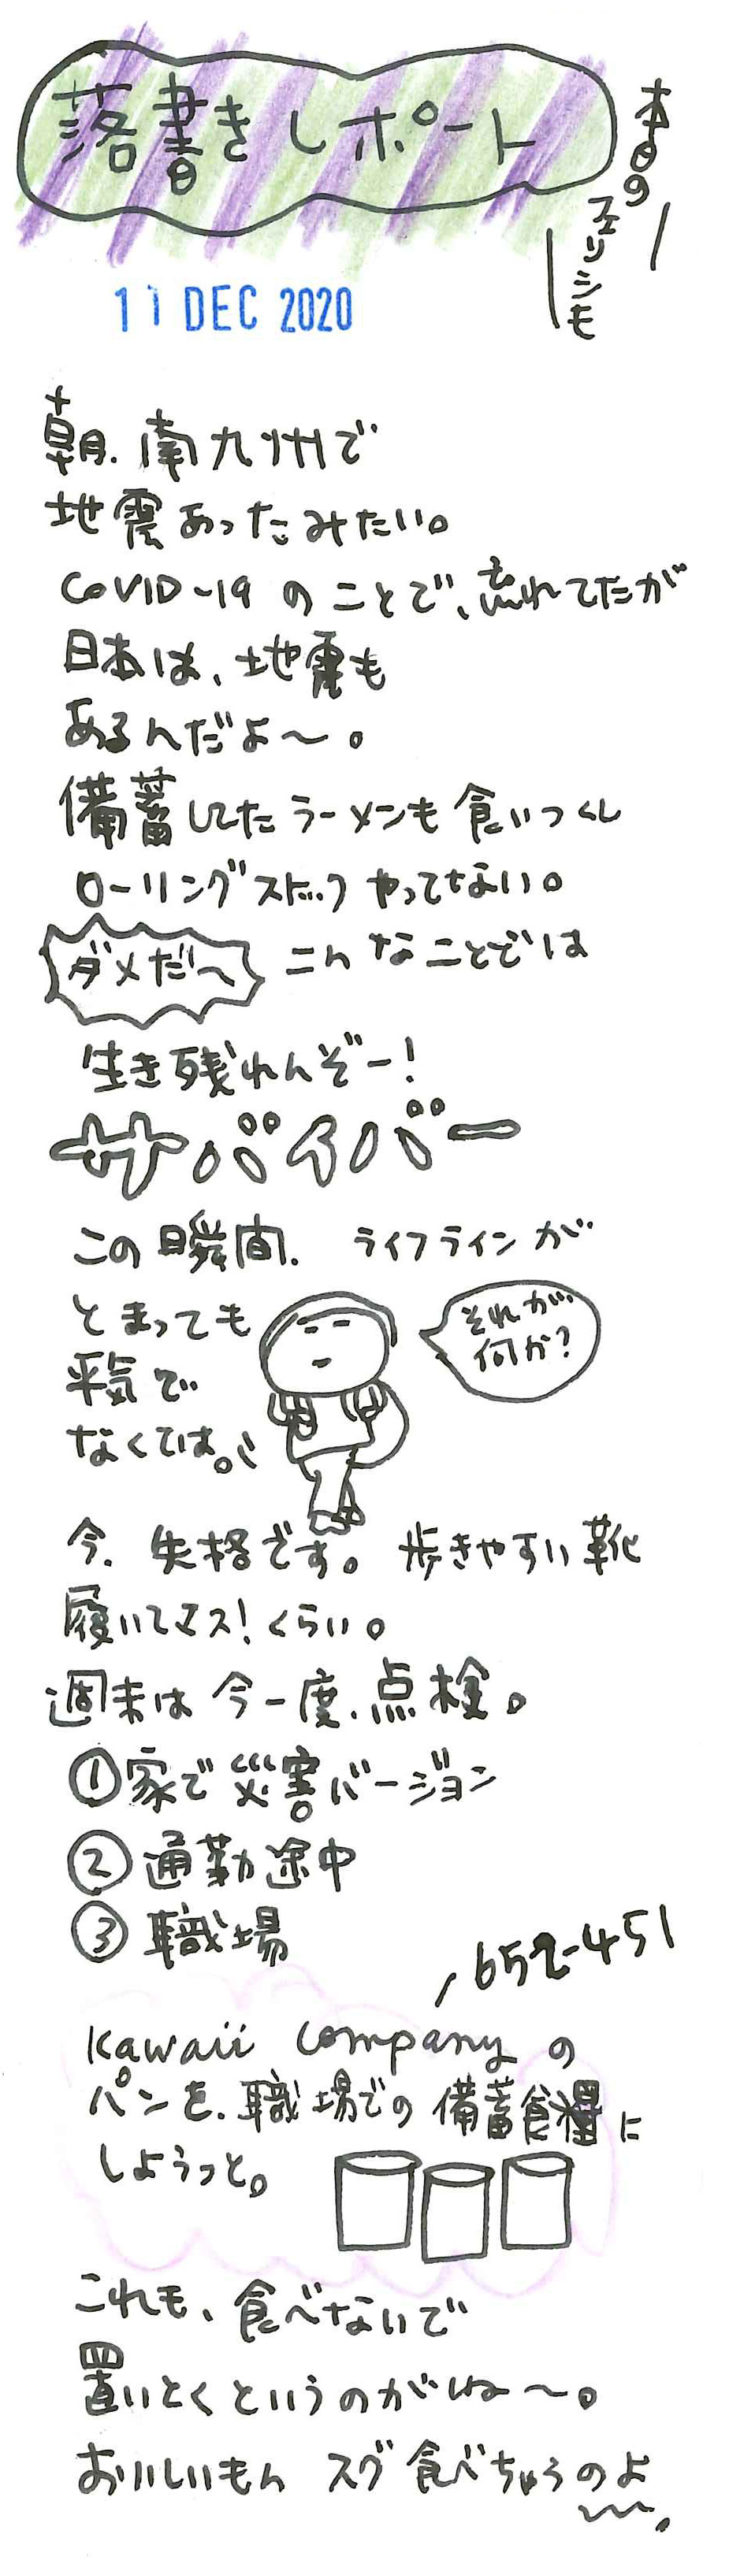 落書きレポート
本日の
フェリシモ
11 DEC 2020
朝、南九州で
地震あったみたい。
COVID-19のことで、流れてたが
日本は、地震も
あるんだよ〜。
備蓄してたラーメンも食いつくし
ローリングストックやってない。
ダメだ〜 こんなことでは
生き残れんぞー!
サバイバー
この瞬間、ライフラインが
とまっても
平気で
なくては。
それが
何か?
今、失格です。歩きやすい靴
履いてマス!くらい。
週末は今一度、点検。
①家で災害バージョン
②通勤途中
③職場
652-451
Kawaii Companyの
パンを、職場での備蓄食糧に
しようっと。
これも、食べないで
置いとくというのがね〜。
おいしいもん スグ食べちゃうのよ